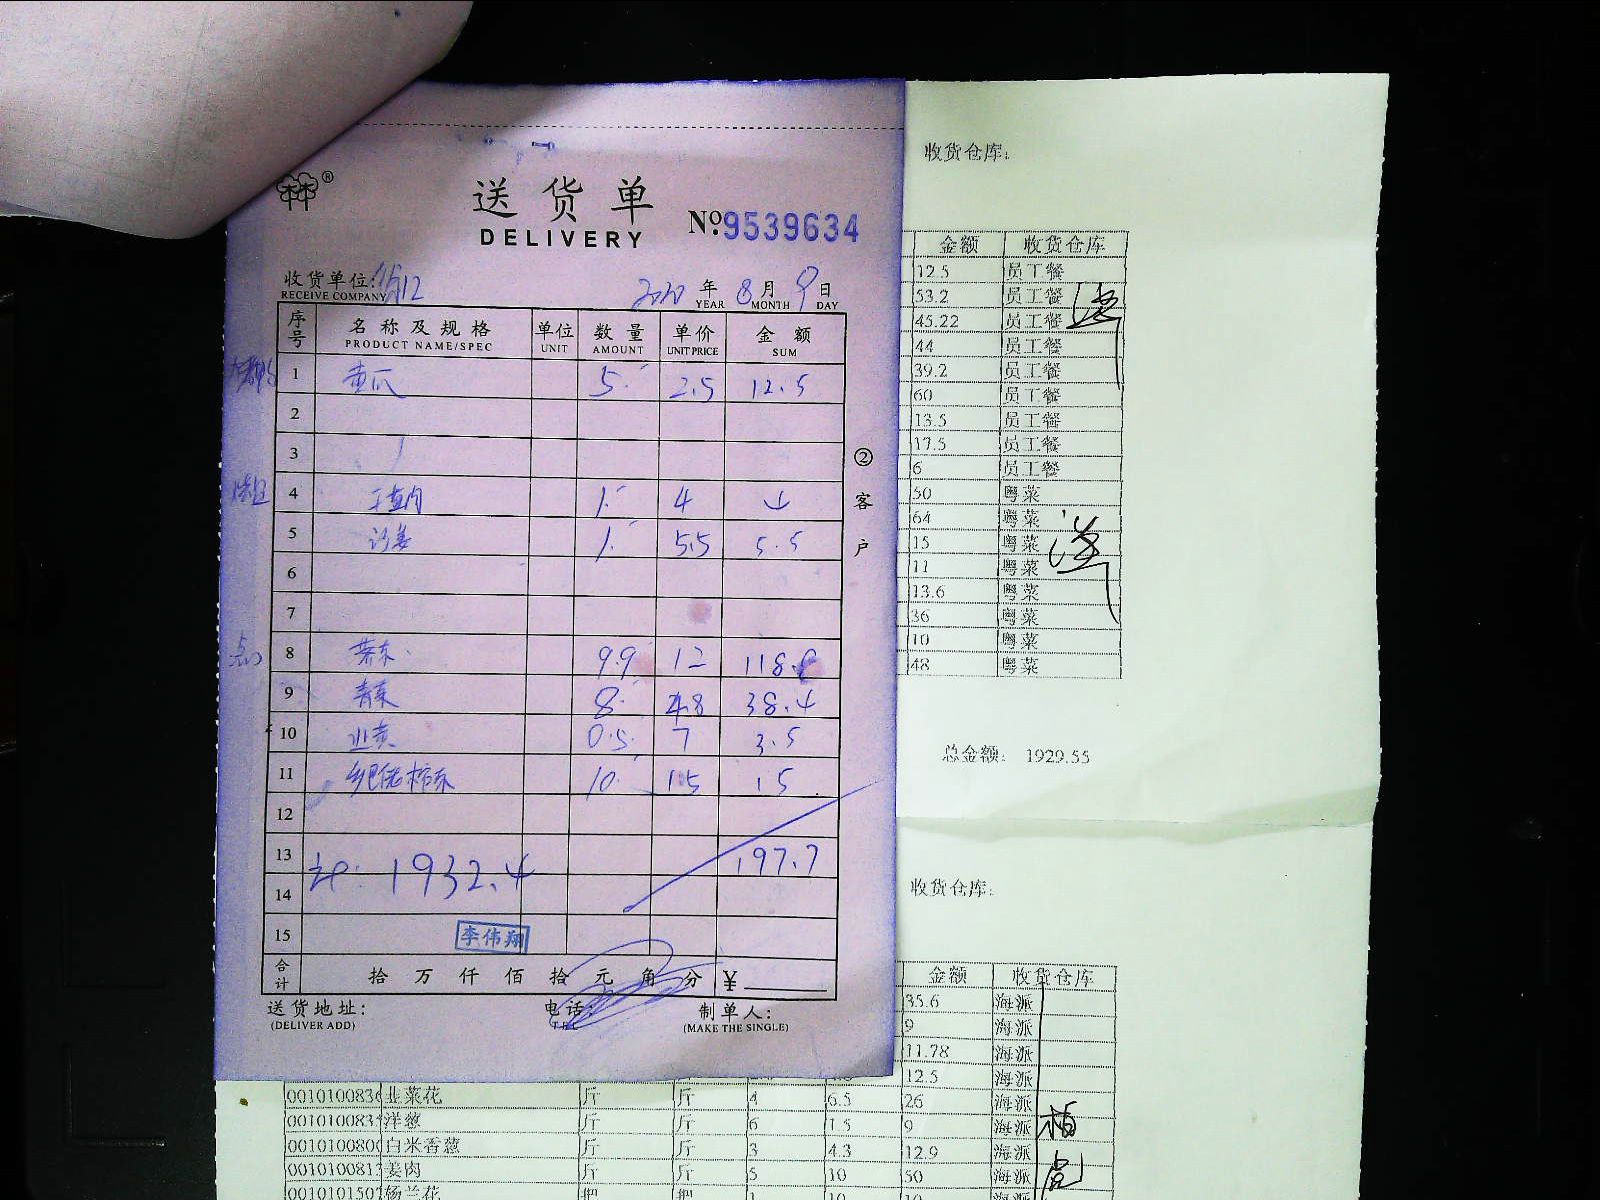 送货单
DELIVERY
№:9539634
收货单位:
RECEIVE COMPANY
2020 年 8 月 9 日
YEAR MONTH DAY
序号 名称及规格 单位 数量 单价 金额
PRODUCT NAME/SPEC UNIT AMOUNT UNIT PRICE SUM
1 黄瓜 5 2.5 12.5
2
3
4 1 4 4
5 沙姜 1 5.5 5.5
6
7
8 9.9 12 118.8
9 青菜 8 4.8 38.4
10 韭黄 0.5 7 3.5
11 10 1.5 15
12
13 197.7
1932.4
14
15
李伟翔
合计 拾 万 仟 佰 拾 元 角 分 ¥
送货地址: 电话: 制单人:
(DELIVER ADD) TEL (MAKE THE SINGLE)
②客户
收货仓库:
金额 收货仓库
12.5 员工餐
53.2 员工餐
45.22 员工餐
44 员工餐
39.2 员工餐
60 员工餐
13.5 员工餐
17.5 员工餐
6 员工餐
50 粤菜
64 粤菜
15 粤菜
11 粤菜
13.6 粤菜
36 粤菜
10 粤菜
48 粤菜
总金额: 1929.55
收货仓库:
金额 收货仓库
35.6 海派
9 海派
11.78 海派
12.5 海派
韭菜花 斤 斤 4 6.5 26 海派
洋葱 斤 斤 6 1.5 9 海派
白米香葱 斤 斤 3 4.3 12.9 海派
姜肉 斤 斤 5 10 50 海派
杨兰花 把 把 1 10 10 海派